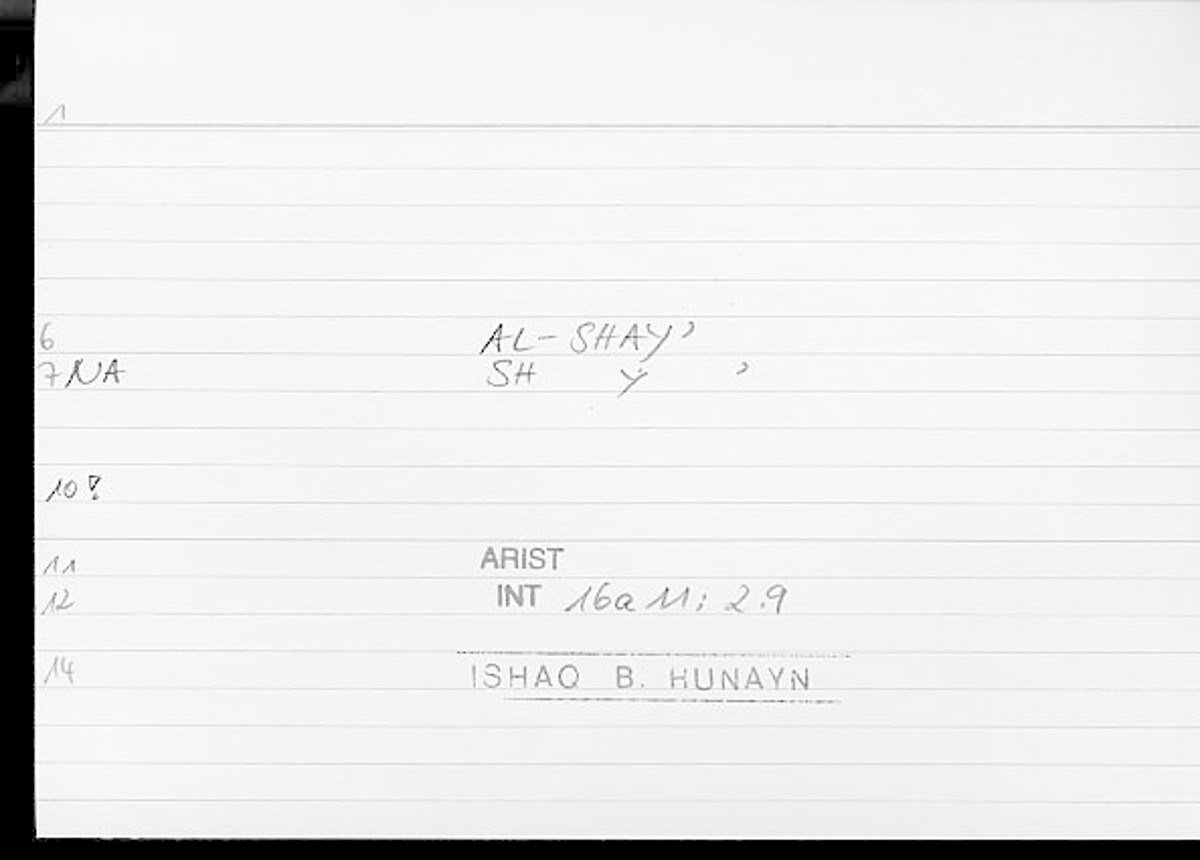 1
6 AL-SHAY'
7 NA SH Y '
10 !
11 ARIST
12 INT 16a 11; 2.9
14 ISHAQ B. HUNAYN